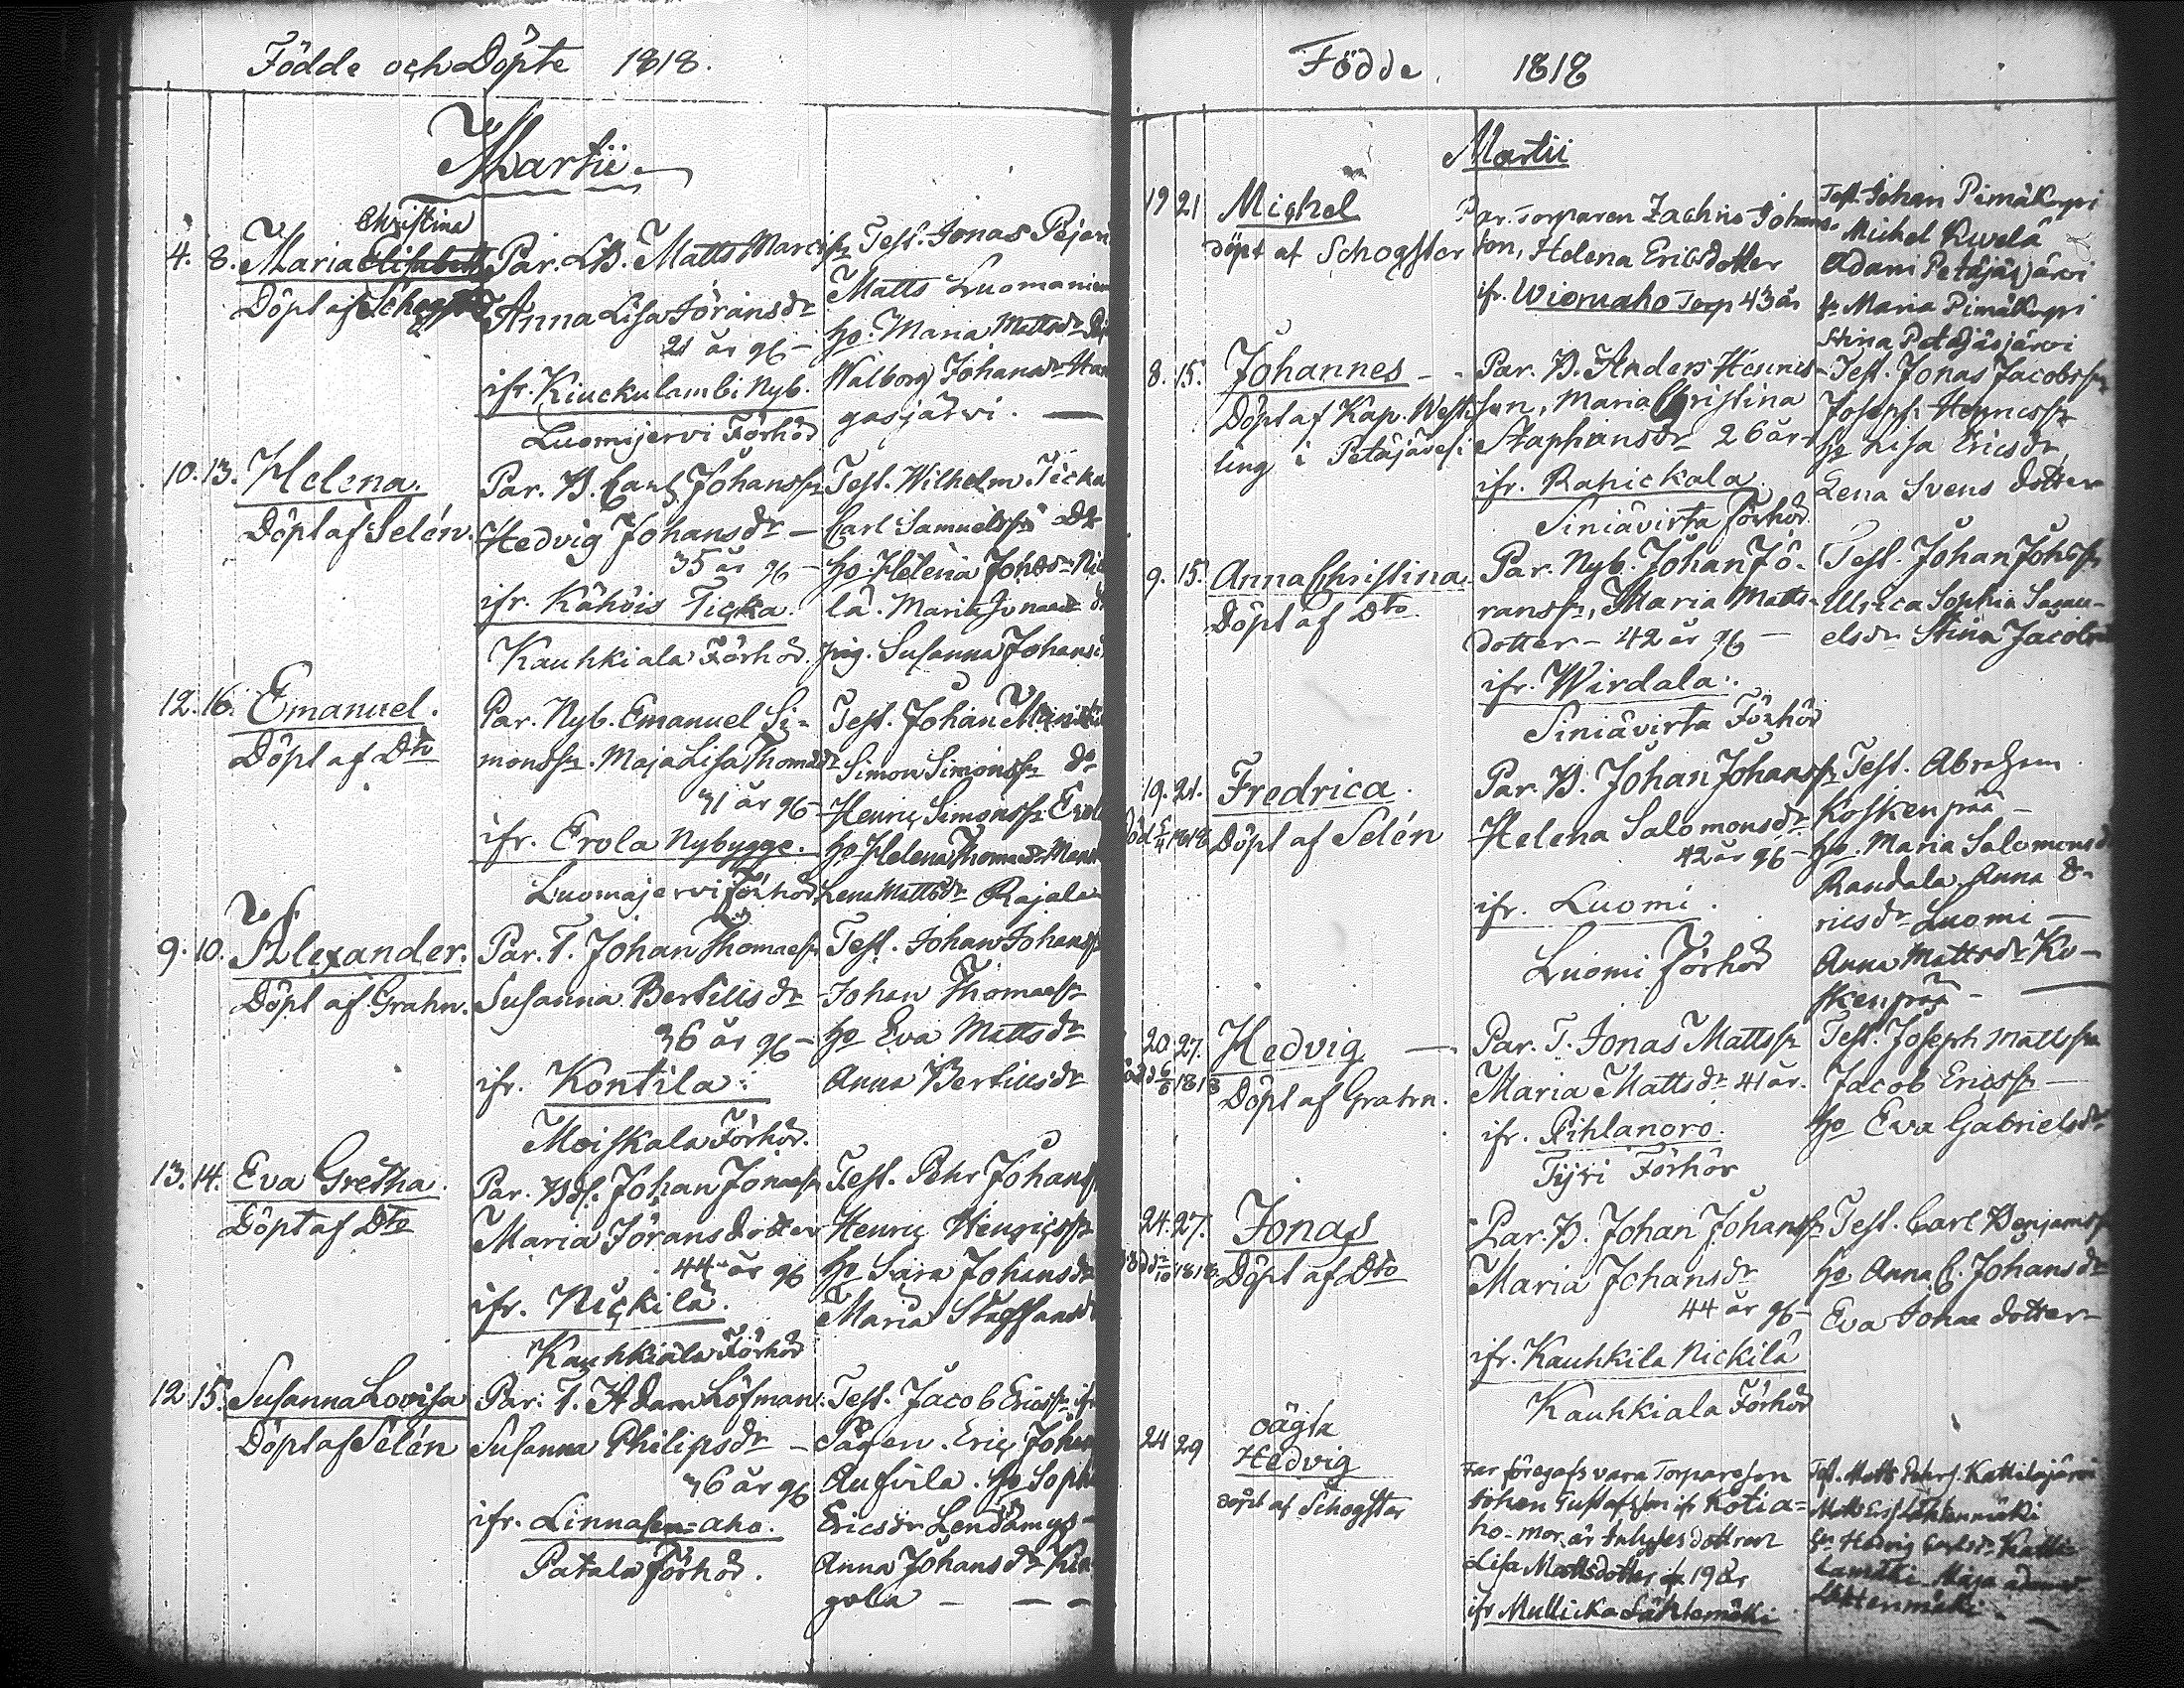 Födde och Döpte 1818.
Martii
4. 8. Maria Elisabeth Christina
Döpt af
Par. LB. Matts Marcissr
Anna Lisa Jöransdr
21 år g6 -
ifr. Kiuckulambi Nyb.
Luomijervi Förhör
Test. Jonas
Matts Luomanien
ho. Maria Mattsdr
Walborg Johansdr
gasjärvi. -
10. 13. Helena.
Döpt af Selén.
Par. B. Carl Johanssr
Hedvig Johansdr -
35 år g6 -
ifr. Kähöis Ticka.
Kauhkiala Förhör.
Test. Wilhelm Ticka
Carl Samuelssr Dto
ho. Helena Johasdr
lä. Maria Jonaedr
pig. Susanna Johansd
12. 16. Emanuel.
Döpt af Dto
Par. Nyb. Emanuel Si-
monssr. Maja Lisa Thomaedr
31 år g6 -
ifr. Erola Nybygge.
Luomajervi Förhör
Test. Johan
Simon Simonssr do
Henric Simonssr Erol
ho Helena Thomaedr
Lena Mattsdr Rajala
9. 10. Alexander.
Döpt af Grahn.
Par. T. Johan Thomaessr
Susanna Bertilsdr
36 år g6 -
ifr. Kontila.
Moiskala Förhör.
Test. Johan Johanssr
Johan Thomaessr
ho Eva Mattsdr
Anna Bertilsdr
13. 14. Eva Gretha.
Döpt af Dto
Par. Bds. Johan Jonaessr
Maria Jöransdotter
44 år g6
ifr. Nickilä.
Kauhkiala Förhör
Test. Pehr Johanss
Henric Henricssr
ho Sara Johansdr
Maria Staffansd
12 15. Susanna Lovisa
Döpt af Selén
Par. T. Adam Löfman:
Susanna Philipsdr -
36 år g6
ifr. Linnasen=aho.
Patala Förhör.
Test. Jacob Ericssr ifr
Sågen. Eric Johan
Aufvila. ho Soph
Ericsdr
Anna Johansdr
golla - - -
Födde 1818
Martii
19 21 Michel
döpt af Schogster
Par. Torparen Zachris Johans-
son, Helena Ericsdotter
ifr. Wiomaho Torp 43 år
Test. Johan Pimäkopri
Michel Kwelä
Adam Petäjäsjärvi
ho Maria Pimäkopri
Stina Petäjäsjärvi
8. 15. Johannes -
Döpt af Kap. Westz-
ling i Petäjävesi
Par. B. Anders Henrics-
son, Maria Christina
Staphansdr 26 år
ifr. Rapickala.
Siniävirta Förhör.
Test. Jonas Jacobssr
Joseph Henricssr
ho Lisa Ericsdr
Lena Svens dotter
9. 15. Anna Christina
Döpt af Dto
Par. Nyb. Johan Jö-
ranssr, Maria Matts-
dotter - 42 år g6 -
ifr. Wirdala.
Siniävirta Förhör
Test. Johan Johssr
Ulrica Sophia Samu-
elsdr Stina Jacobsd
19. 21. Fredrica.
död 5/4 1818 Döpt af Selén
Par. B. Johan Johanssr
Helena Salomonsdr
42 år g6 -
ifr. Luomi.
Luomi Förhör
Test. Abraham
Koskenpää -
ho. Maria Salomonsd
Randala Anna E-
ricsdr Luomi -
Anna Mattsdr Ko-
skenpää - -
20 27. Hedvig -
död 6/6 1818 Döpt af Grahn.
Par. T. Jonas Mattssr
Maria Mattsdr 41 år.
ifr. Pihlanoro.
Tyri Förhör
Test. Joseph Mattssr
Jacob Ericssr -
ho Eva Gabrielsdr
24. 27. Jonas
1818 Döpt af Dto
Par. B. Johan Johanssr
Maria Johansdr
44 år g6 -
ifr. Kauhkila Nickilä
Kauhkiala Förhör
Test. Carl Benjamssr
ho Anna C. Johansdr
Eva Jonae dotter
24 29 oägta
Hedvig
döpt af Schogster
Far föregafs vara Torpareson
Johan Gustafsson ifr Kotia=
ho - mor är Inhyses dottren
Lisa Mattsdotter 19 år
ifr Mullicka Lähtemäki
Test. Matts Pehrs. Kattilajärvi
Matts Erss Lähtenmäki
ho Hedvig Carlsdr Katti-
Maja
Lähtenmäki -